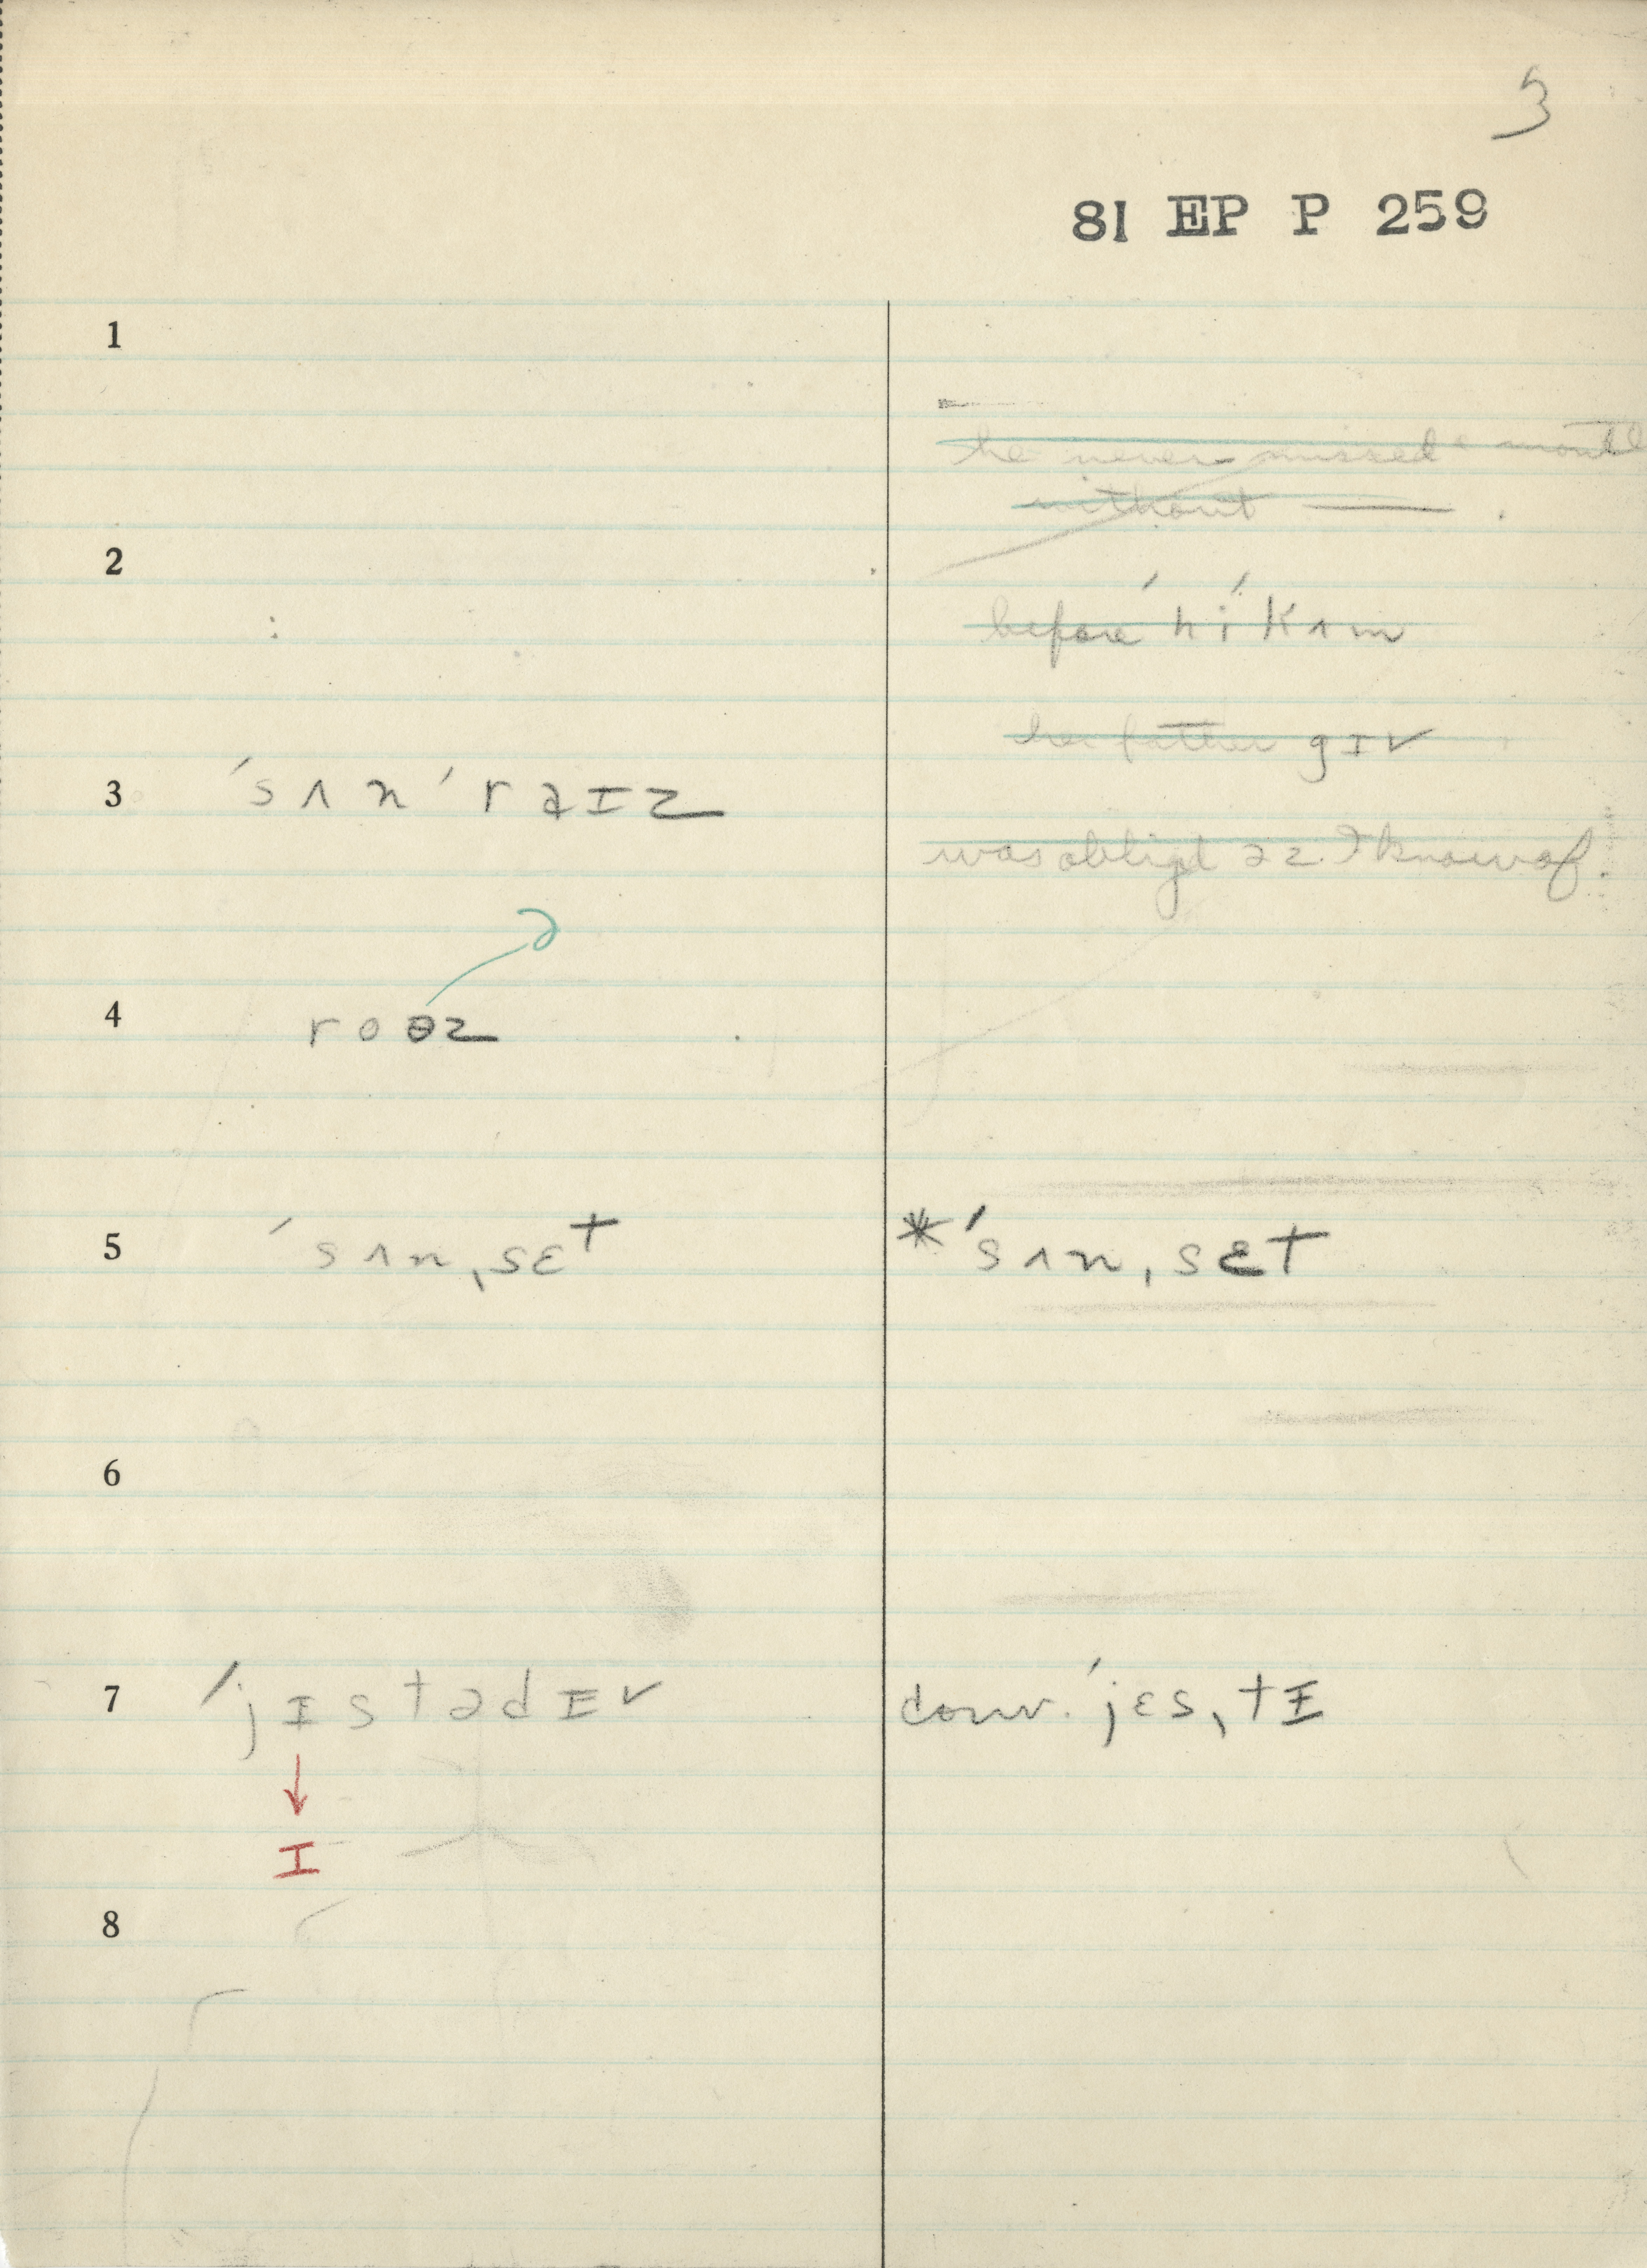 3
81 EP P 259
1
he never missed a month
without ———.
2
before ˈhi ˈkʌm
her father gɪv
3 ˈsʌn ˈraɪz
was obligd əz I know of.
ə
4 roəz
5 ˈsʌnˌsɛt *ˈsʌnˌsɛt
6
7 ˈjɪstədɪv conv. ˈjɛsˌtɪ
↓
ɪ
8